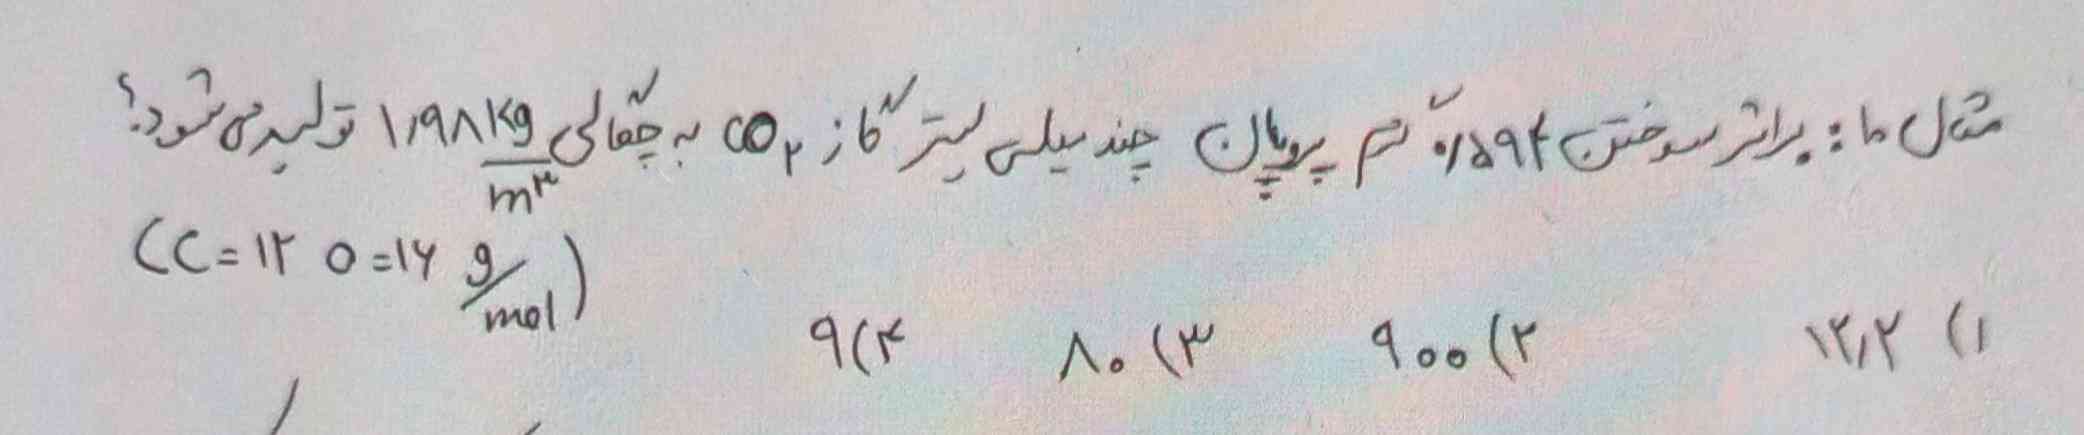 مثال ۱۰: براثر سوختن ۰٫۵۹۴ گرم پروپان چند میلی لیتر گاز CO₂ به چگالی ۱٫۹۸ kg/m³ تولید می شود؟
(C=۱۲ O=۱۶ g/mol)
۱) ۱۲٫۲ ۲) ۹۰۰ ۳) ۸۰ ۴) ۹